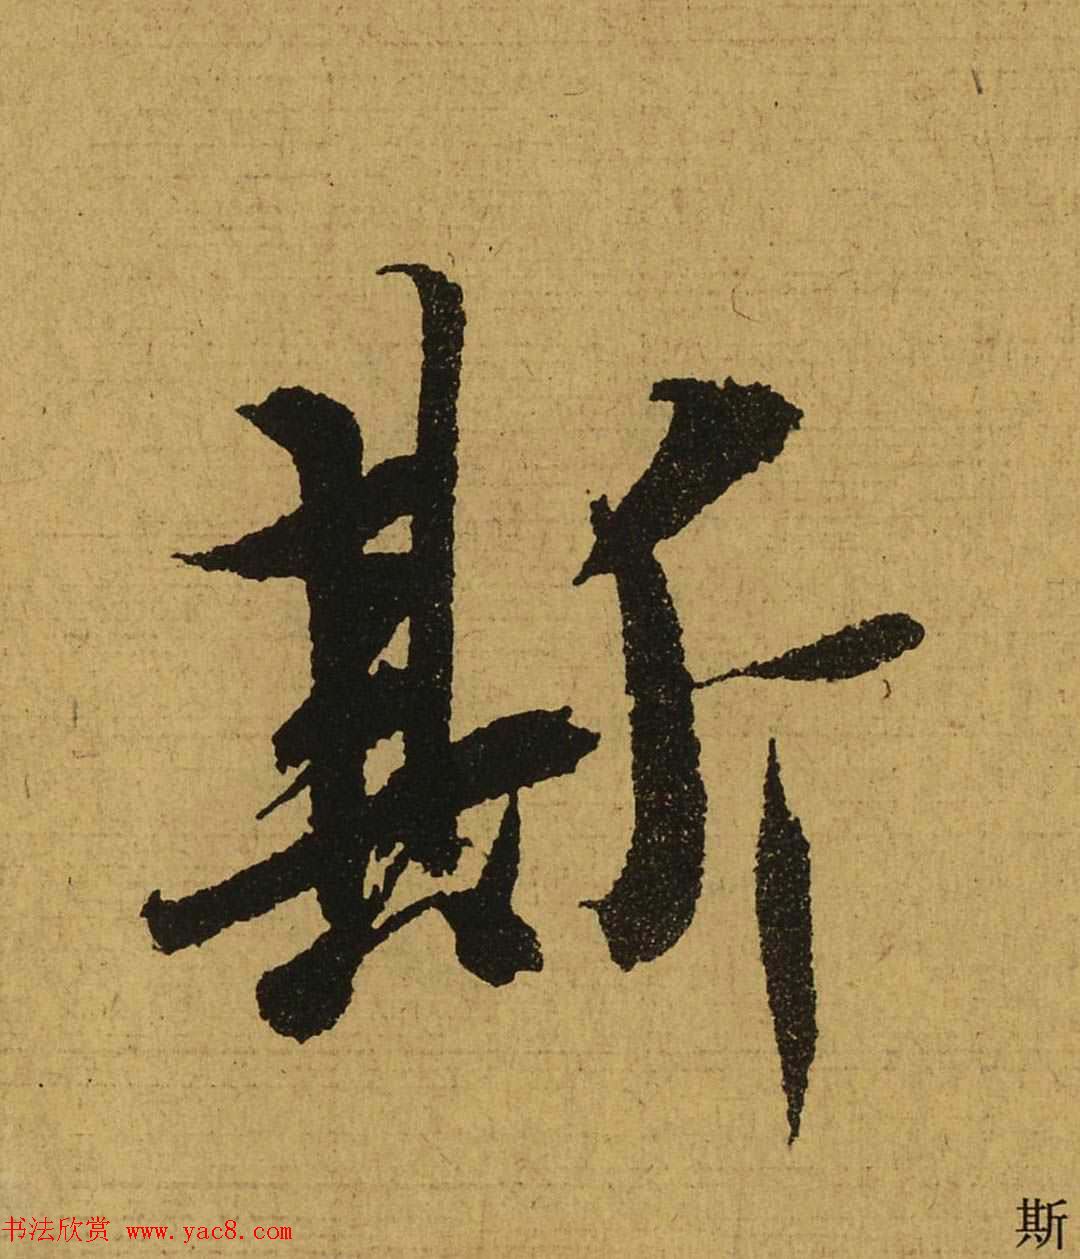 斯
斯
书法欣赏 www.yac8.com